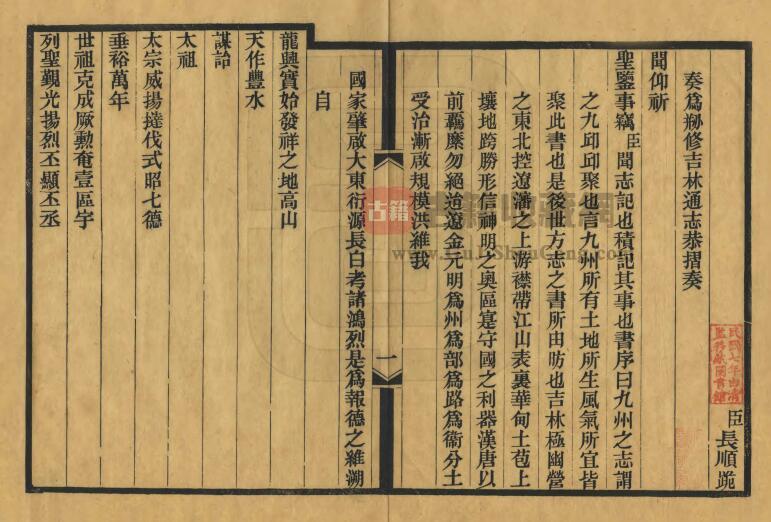 臣長順跪
奏爲刱修吉林通志恭摺奏
聞仰祈
聖鑒事竊臣聞志記也積記其事也書序曰九州之志謂
之九邱邱聚也言九州所有土地所生風氣所宜皆
聚此書也是後世方志之書所由昉也吉林極幽營
之東北控遼瀋之上游襟帶江山表裏華甸土苞上
壤地跨勝形信神明之奧區寔守國之利器漢唐以
前羈縻勿絕迨遼金元明爲州爲部爲路爲衞分土
受治漸啟規模洪維我
國家肇啟大東衍源長白考諸鴻烈是爲報德之維溯
自
龍興實始發祥之地高山
天作豐水
謀詒
太祖
太宗威揚撻伐式昭七德
垂裕萬年
世祖克成厥勳奄壹區宇
列聖覲光揚烈丕顯丕丞
一
古籍